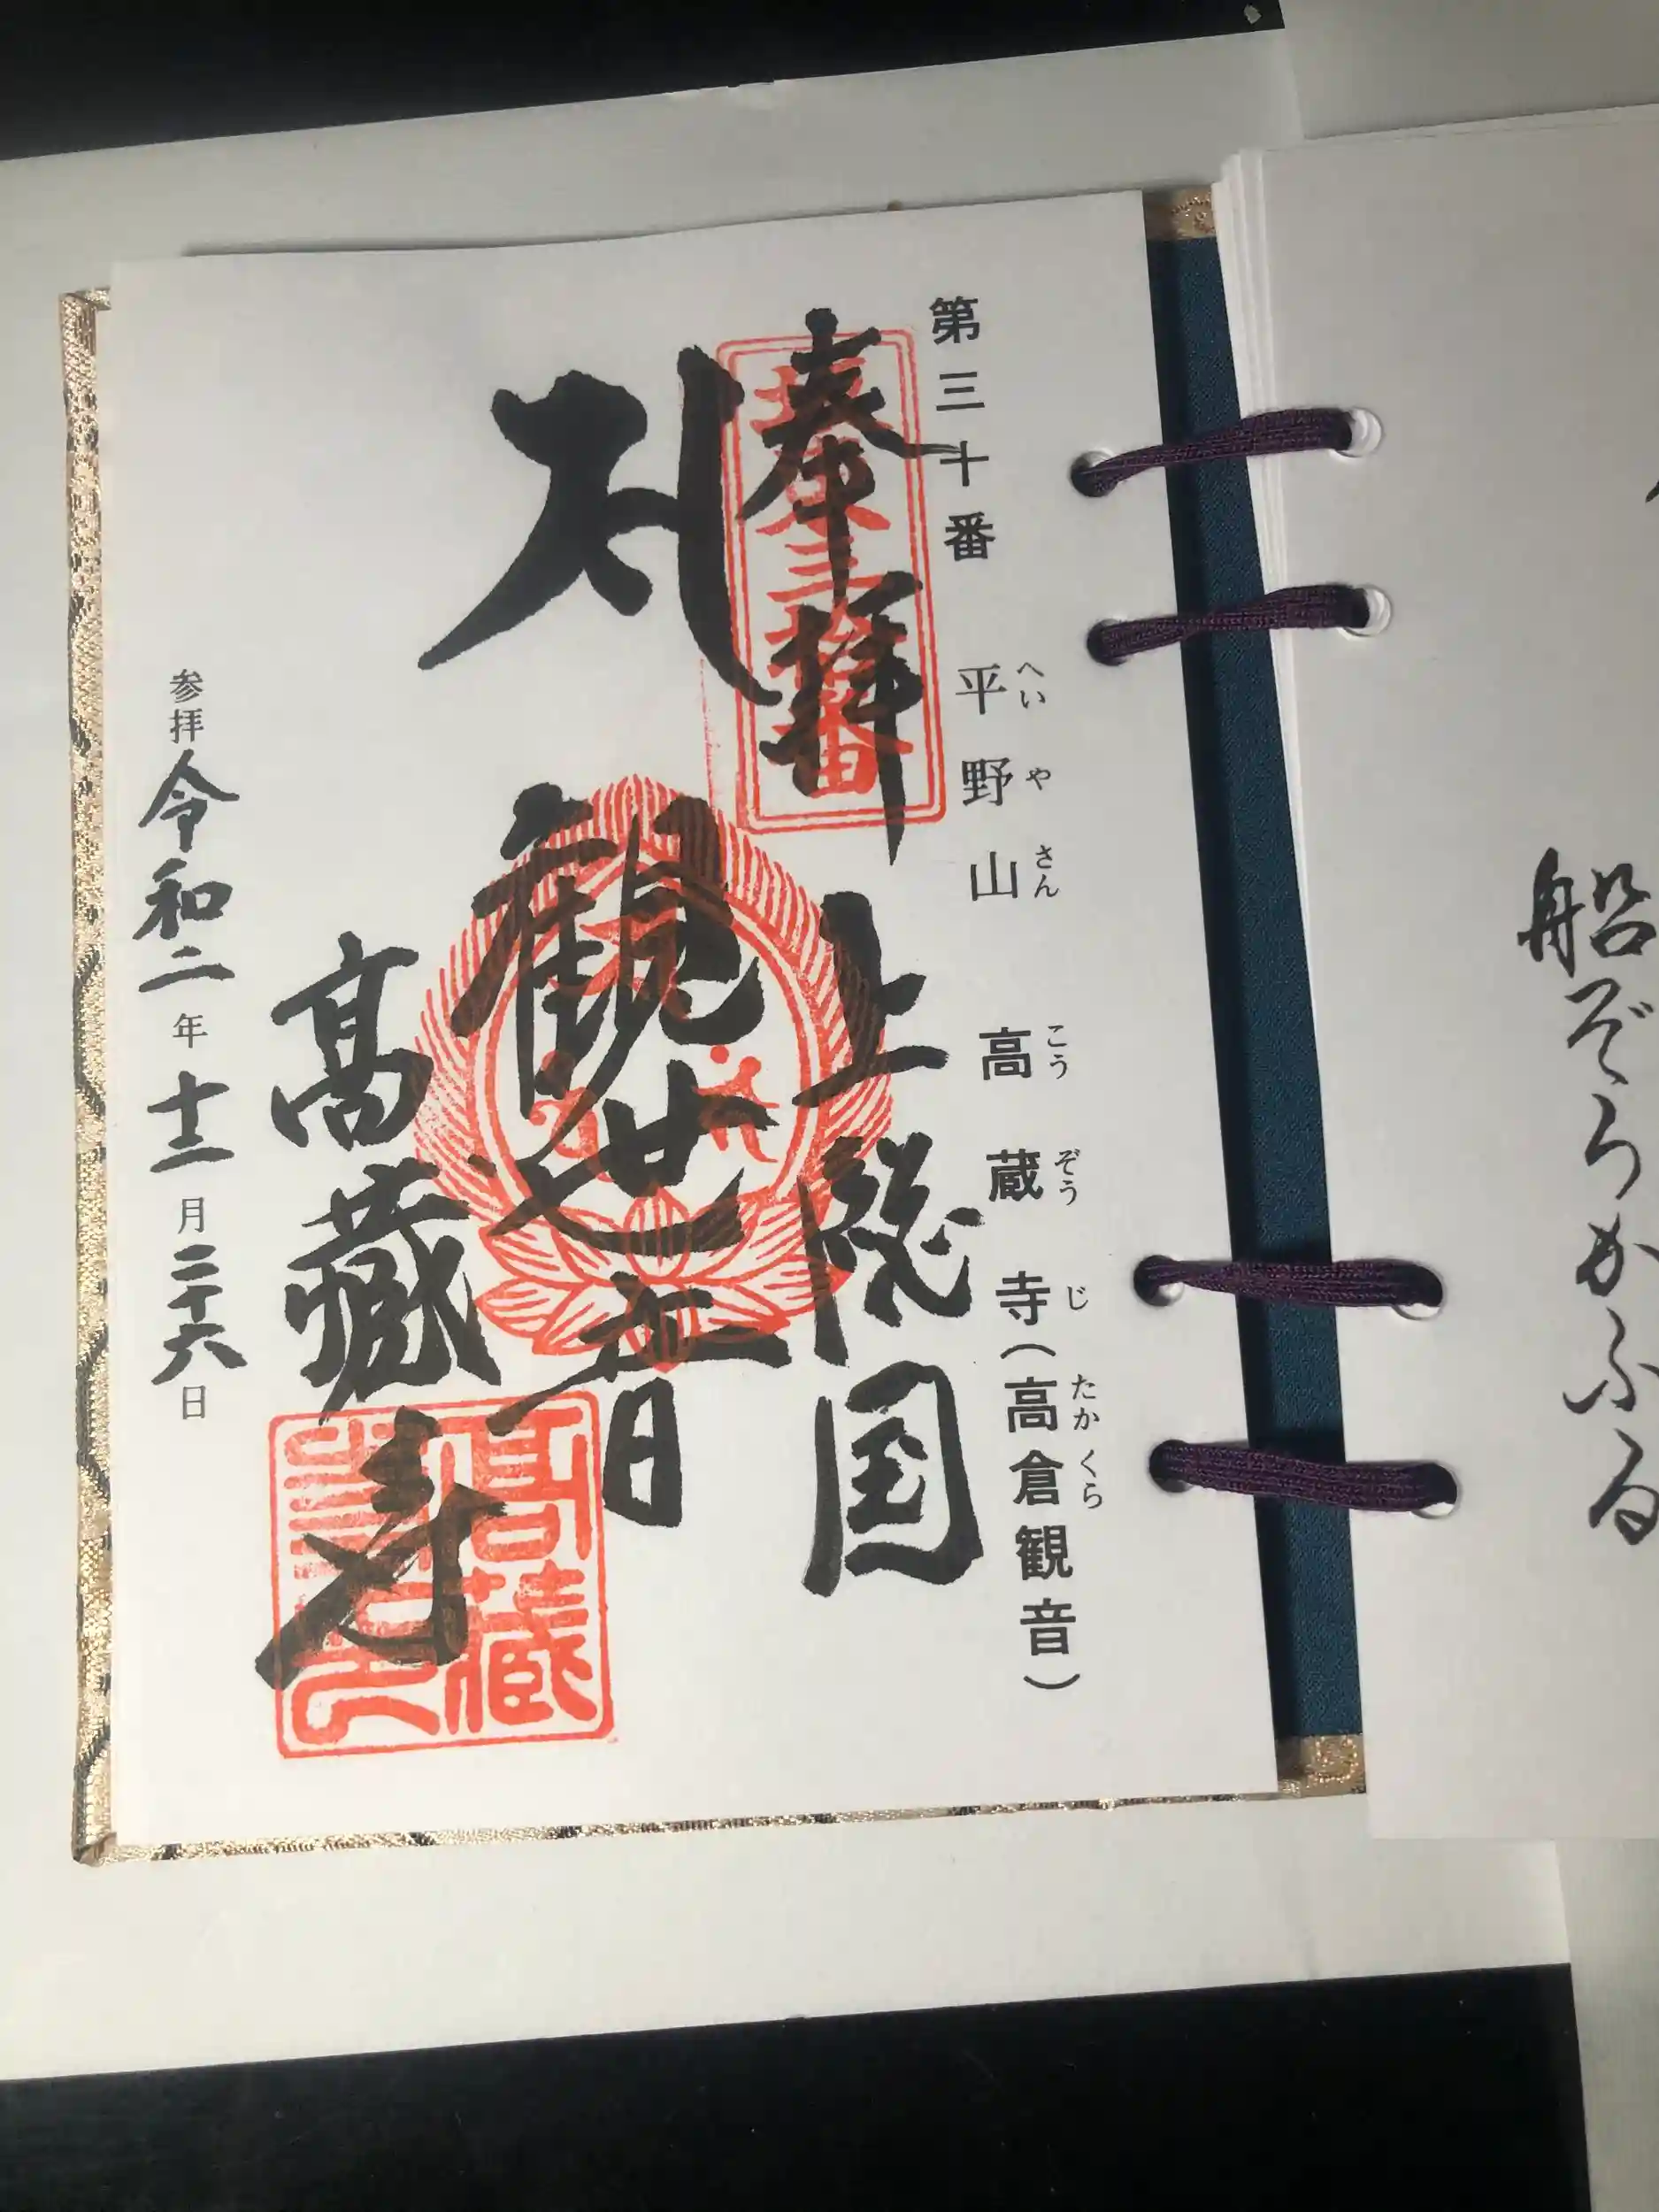 第三十番 平野山 高蔵寺(高倉観音)
へいやさん こうぞうじ たかくら
奉拝
坂東三拾番
上総国
観世音
高蔵寺
高蔵
参拝 令和二年 十二月 二十六日
船ぞ